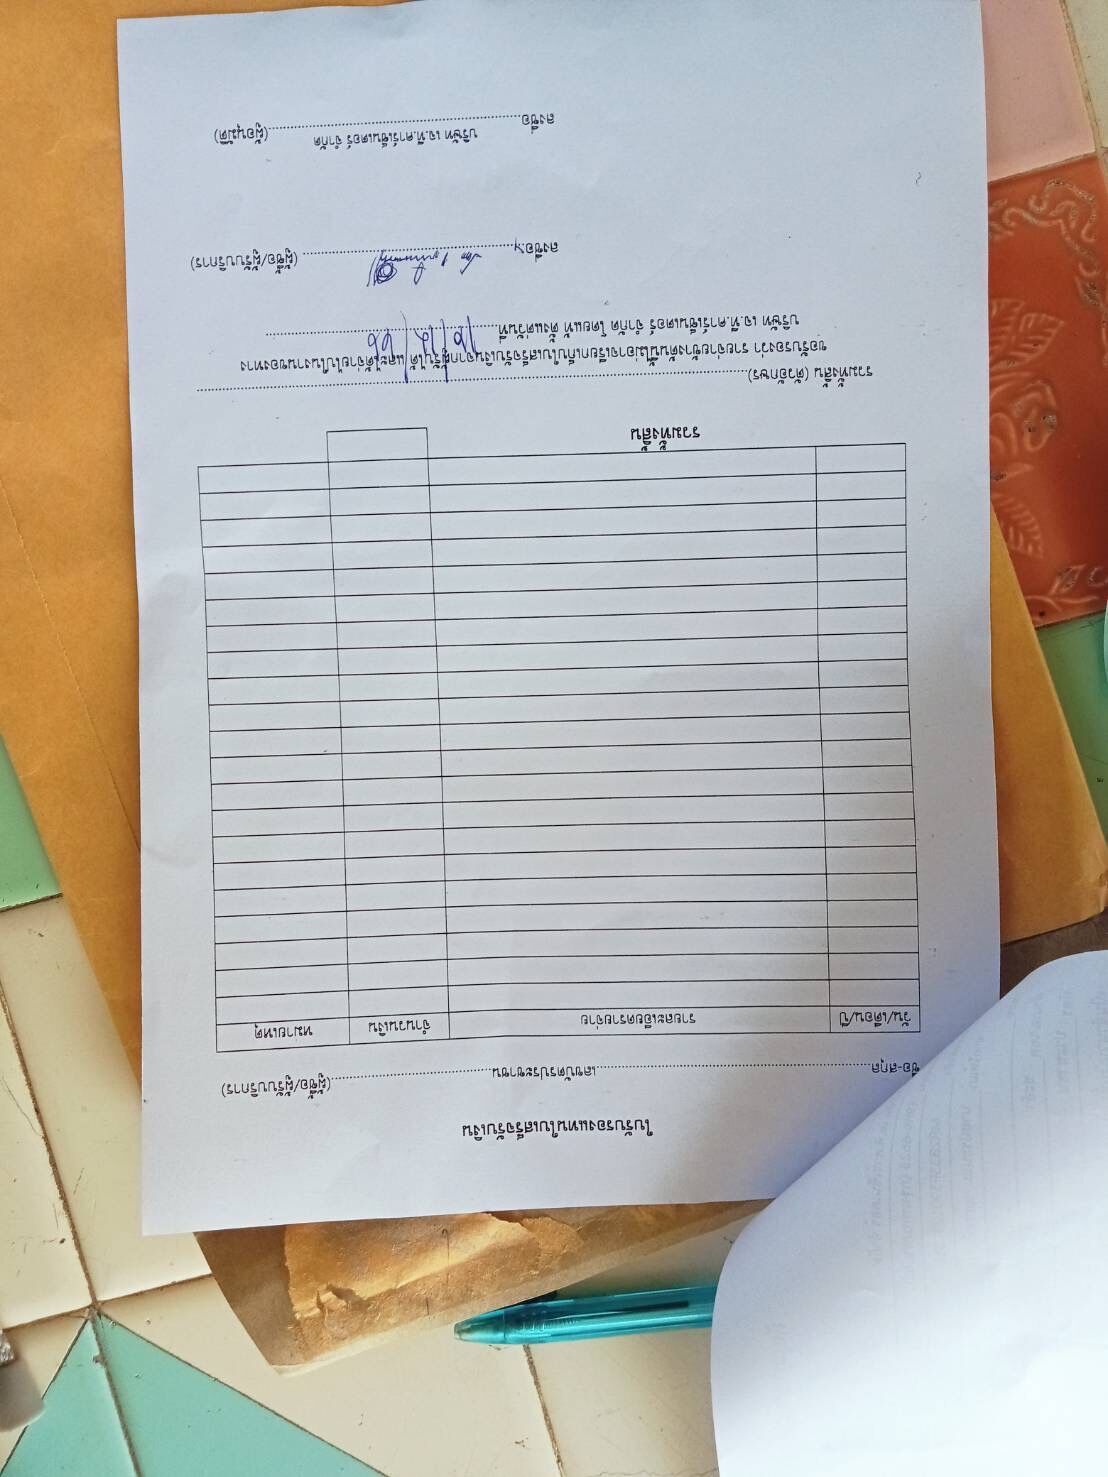 ใบรับรองแทนใบเสร็จรับเงิน
ชื่อ-สกุล..................................................เลขบัตรประชาชน..............................(ผู้ซื้อ/ผู้รับบริการ)
วัน/เดือน/ปี รายละเอียดรายจ่าย จำนวนเงิน หมายเหตุ
รวมทั้งสิ้น
รวมทั้งสิ้น (ตัวอักษร)....................................................................................
ขอรับรองว่า รายจ่ายข้างต้นนี้ไม่อาจเรียกเก็บใบเสร็จรับเงินจากผู้รับได้ และได้จ่ายไปในงานของทาง
บริษัท เจ.ที.คาร์เซ็นเตอร์ จำกัด โดยแท้ ตั้งแต่วันที่ 16/12/66
ลงชื่อ..............................(ผู้ซื้อ/ผู้รับบริการ)
บริษัท เจ.ที.คาร์เซ็นเตอร์ จำกัด
ลงชื่อ........................................(ผู้อนุมัติ)